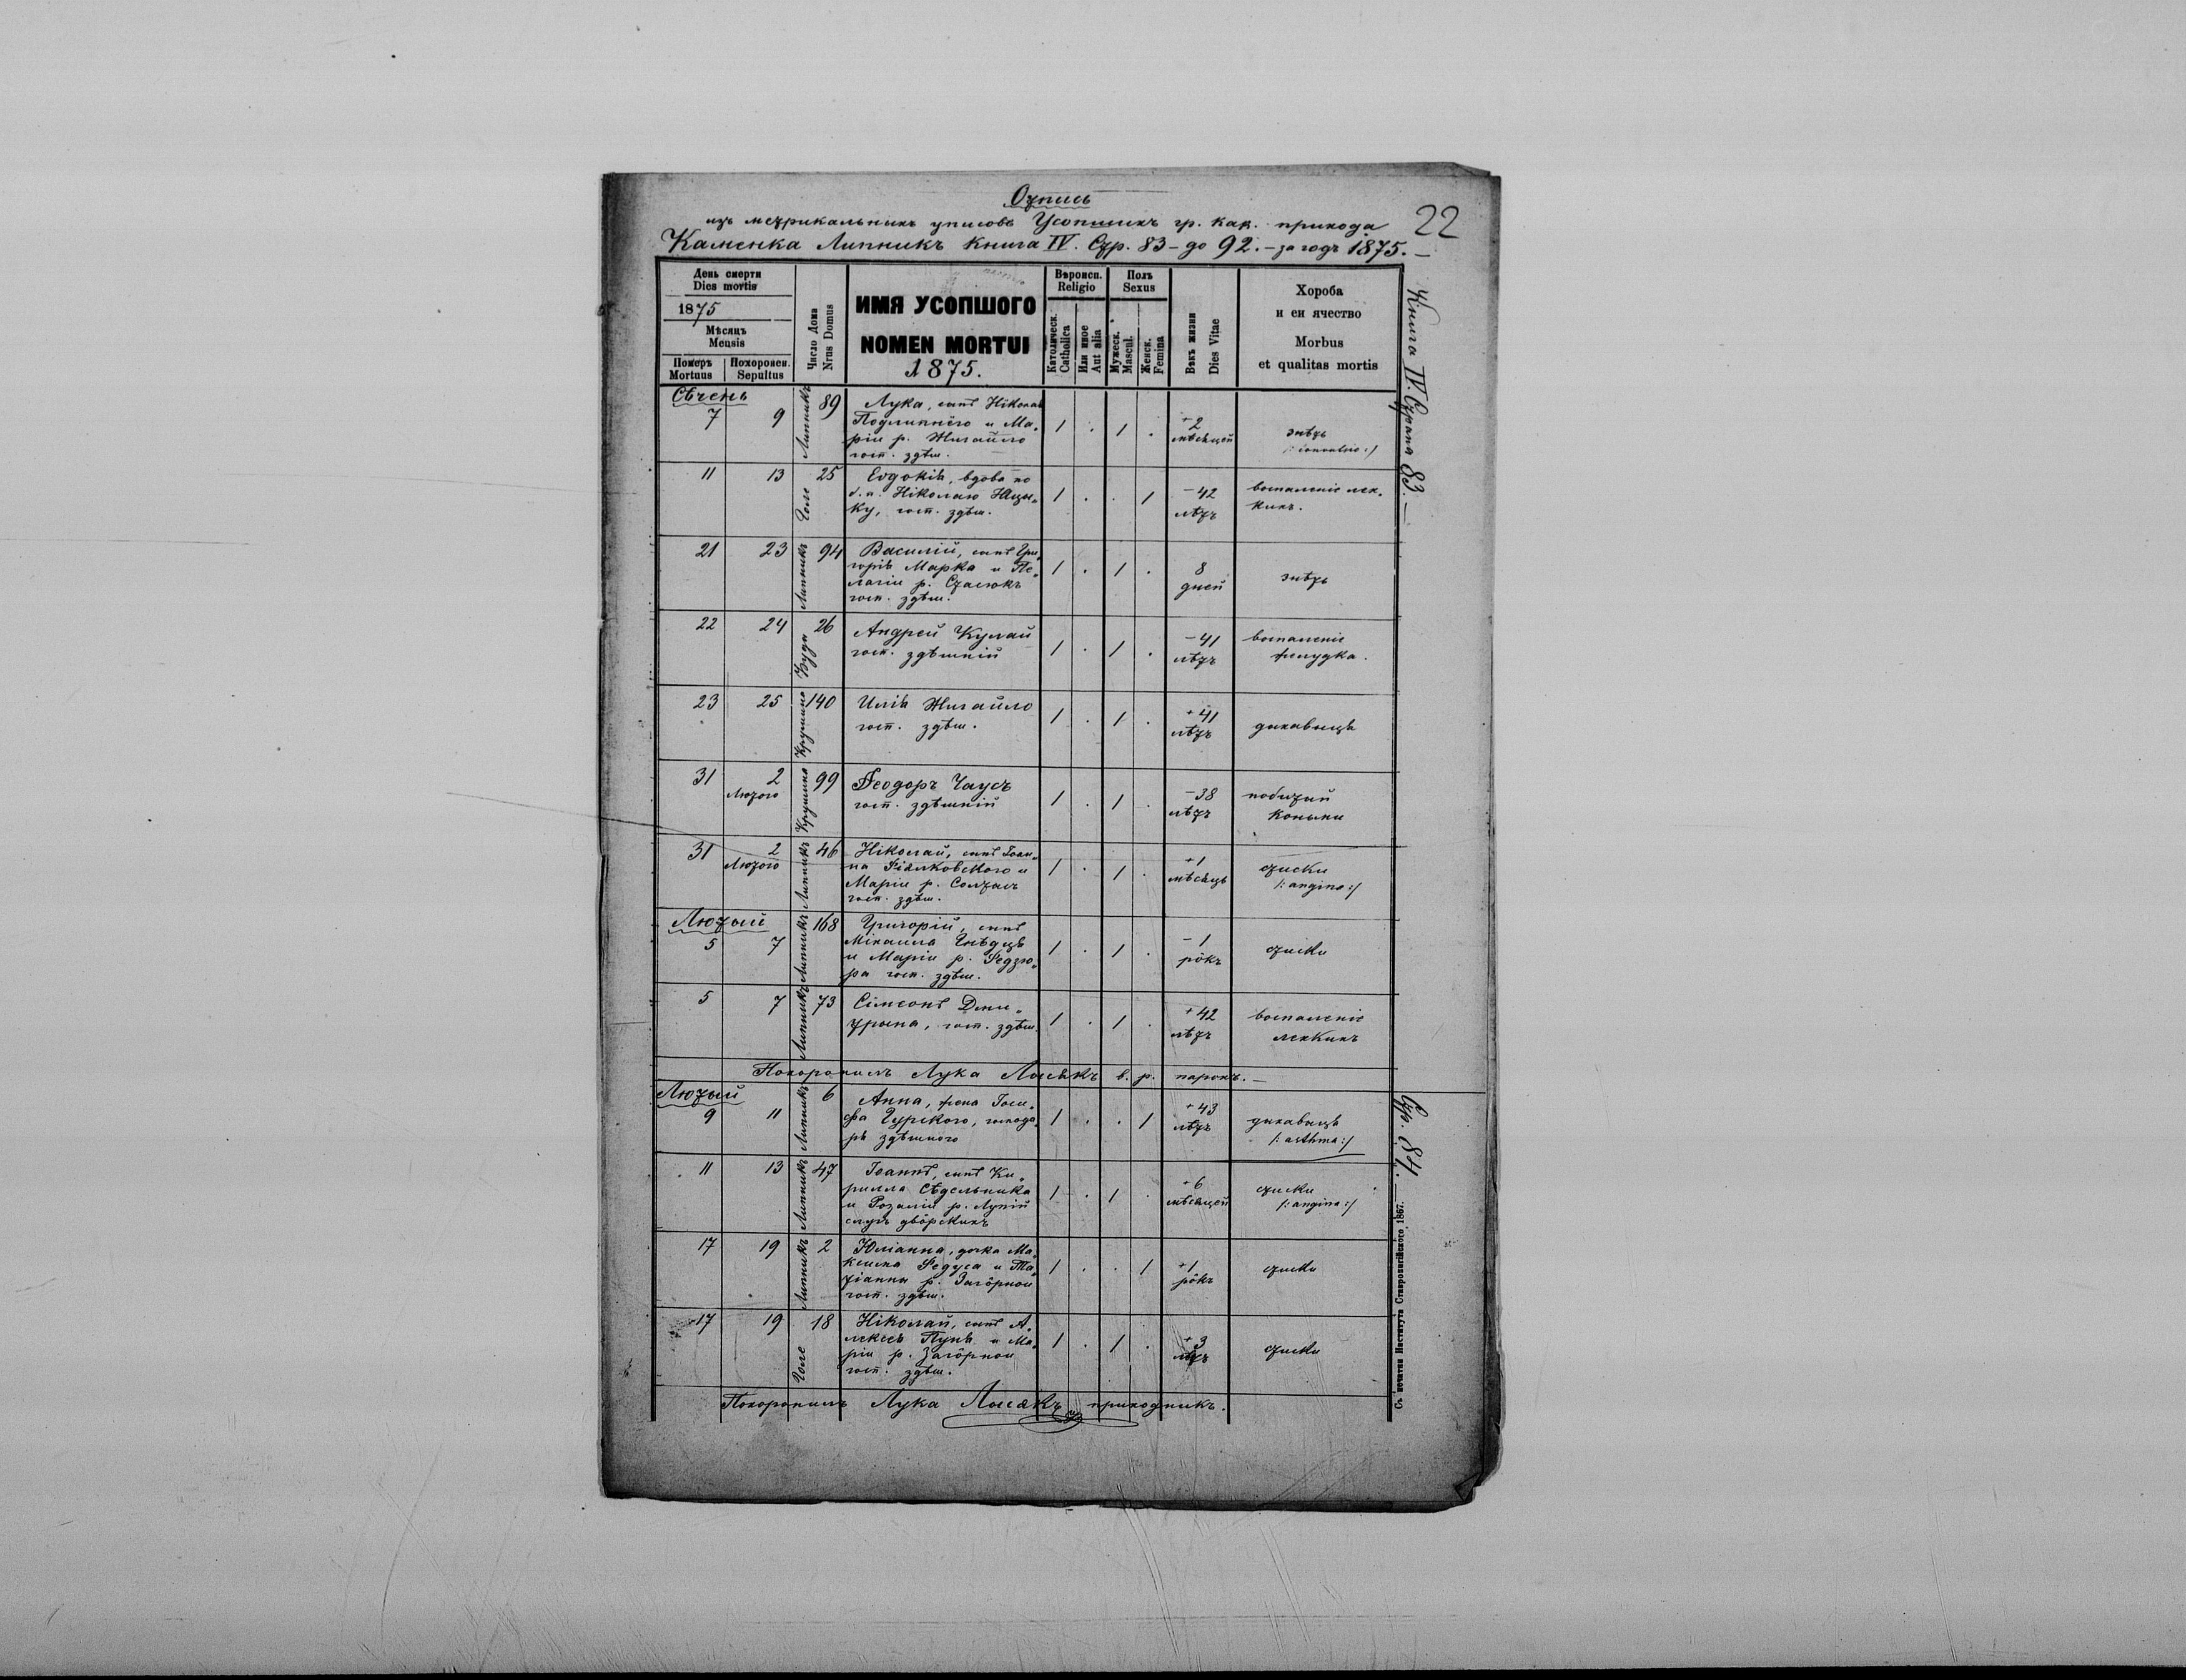 Отпись
изъ метрикальныхъ уписовъ Усопшихъ гр. кат. прихода
Каменка Липникъ книга IV. Стр. 83 – до 92. – за годъ 1875. –
22
День смерти
Dies mortis
1875
Мѣсяць
Mensis
Померъ
Mortuus
Похоронен.
Sepultus
Число Дома
Nrus Domus
ИМЯ УСОПШОГО
NOMEN MORTUI
1875.
Вѣроисп.
Religio
Католическ.
Catholica
Или иное
Aut alia
Полъ
Sexus
Мужеск.
Mascul.
Женск.
Femina
Вѣкъ жизни
Dies Vitae
Хороба
и еи ячество
Morbus
et qualitas mortis
Книга IV. Страна 83. –
Сѣчень
7 9 Липникъ 89 Лука, сынъ Николая
Подлипнёго и Ма„
ріи р. Жигайло
гост. здѣш.
1 . 1 . +2
мѣсяцей
11 13 Голе 25 Евдокія, вдова по
б. п. Николаю Яцы„
ку, гост. здѣш.
1 . . 1 –42
лѣтъ
воспаленіе лех„
кихъ.
21 23 Липникъ 94 Василій, сынъ Гри„
горія Марка и Пе„
лагіи р. Стасюкъ
гост. здѣш.
1 . 1 . 8
дней
22 24 Буда 26 Андрей Кулай
гост. здѣшній
1 . 1 . –41
лѣтъ
воспаленіе
желудка.
23 25 140 Илія Жигайло
гост. здѣш.
1 . 1 . +41
лѣтъ
дихавиця
31 2
Лютого
99 Ѳеодоръ Чаусъ
гост. здѣшній
1 . 1 . –38
лѣтъ
побитый
коньми
31 2
Лютого
Липникъ 46 Николай, сынъ Іоан„
на Фіалковского и
Маріи р. Солтысъ
гост. здѣш.
1 . 1 . +1
мѣсяць
стиски
/: angina :/
Лютый
5 7 Липникъ 168 Григорій, сынъ
Михаила Гнѣдця
и Маріи р. Федзю„
ра гост. здѣш.
1 . 1 . –1
рôкъ
стиски
5 7 Липникъ 73 Сімеонъ Дми„
трына, гост. здѣш.
1 . 1 . +42
лѣтъ
воспаленіе
лехкихъ
Похоронилъ Лука Лысякъ в. р. парохъ. –
Лютый
9 11 Липникъ 6 Анна, жена Іоси„
фа Гурского, господа„
ря здѣшнего
1 . . 1 +43
лѣтъ
дихавиця
/: asthma :/
Стр. 84. –
11 13 Липникъ 47 Іоаннъ, сынъ Ки„
рилла Сѣдельника
и Розаліи р. Лупій
слугъ двôрскихъ
1 . 1 . +6
мѣсяцей
стиски
/: angina :/
17 19 Липникъ 2 Юліанна, дочка Ма„
ксима Федуса и Та„
тіанны р. Загôрной
гост. здѣш.
1 . . 1 +1
рôкъ
стиски
17 19 Голе 18 Николай, сынъ А„
лексѣя Пупя и Ма„
ріи р. Загôрной
гост. здѣш.
1 . 1 . +3
лѣтъ
стиски
Похоронилъ Лука Лысякъ приходникъ.
Съ печатни Института Ставропигійского 1867.